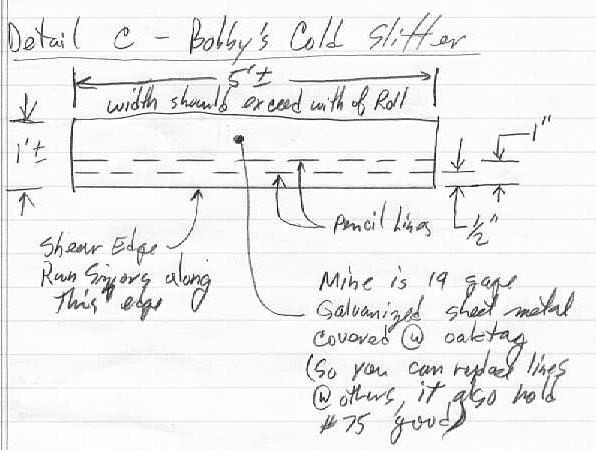 Detail C - Bobby's Cold Slitter
5'±
width should exceed with of Roll
1'±
1"
1/2"
Pencil Lines
Shear Edge
Run Sizzors along
This edge
Mine is 19 gage
Galvanized sheet metal
covered @ oaktag
(So you can replace lines
@ others, it also hold
#75 good)